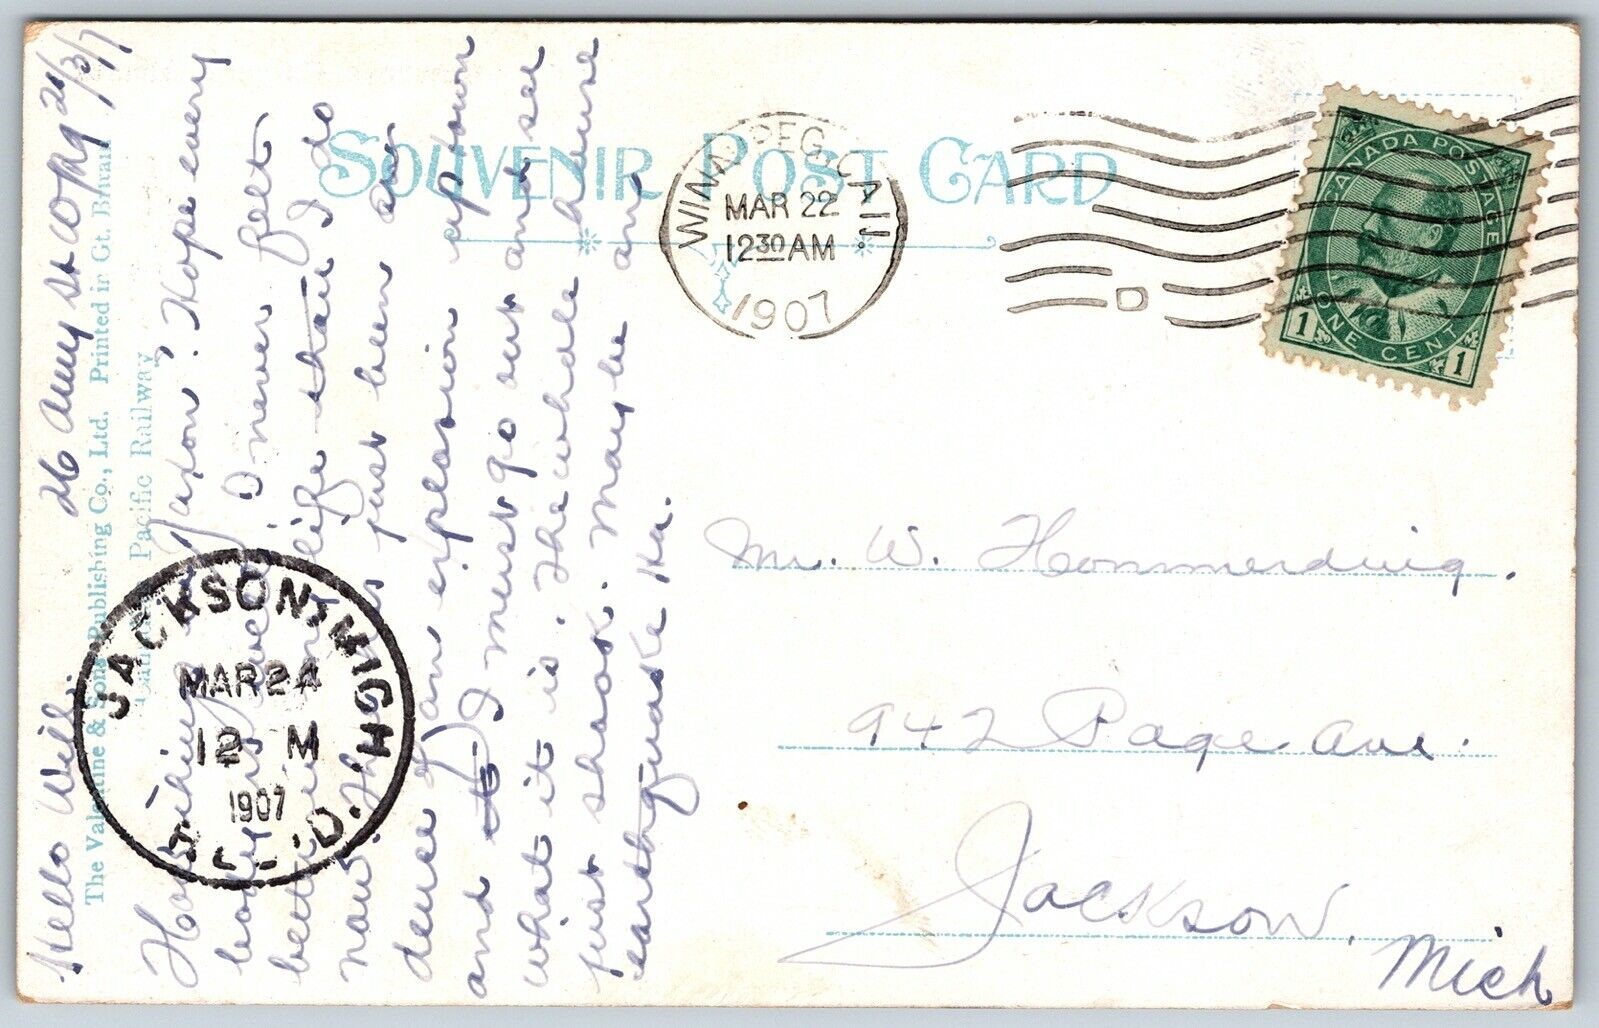 SOUVENIR POST CARD
WINNIPEG, CAN.
MAR 22
12 30 AM
1907
D
CANADA POSTAGE
ONE CENT
1 1
Hello Will. 26 Amy St Wpg 21/3/7
The Valentine & Sons Publishing Co., Ltd. Printed in Gt. Britain
Canadian Pacific Railway
How things in Jaxon? Hope every
body is well. I never felt
better in my life than I do
now. There has just been an
deuse of an explosion uptown
and it I must go out and see
what it is. The whole house
just shook. Maybe an
earthquake Ha.
JACKSON, MICH.
MAR 24
12 M
1907
REC'D.
Mr. W. Hommerding.
942 Page Ave.
Jackson,
Mich